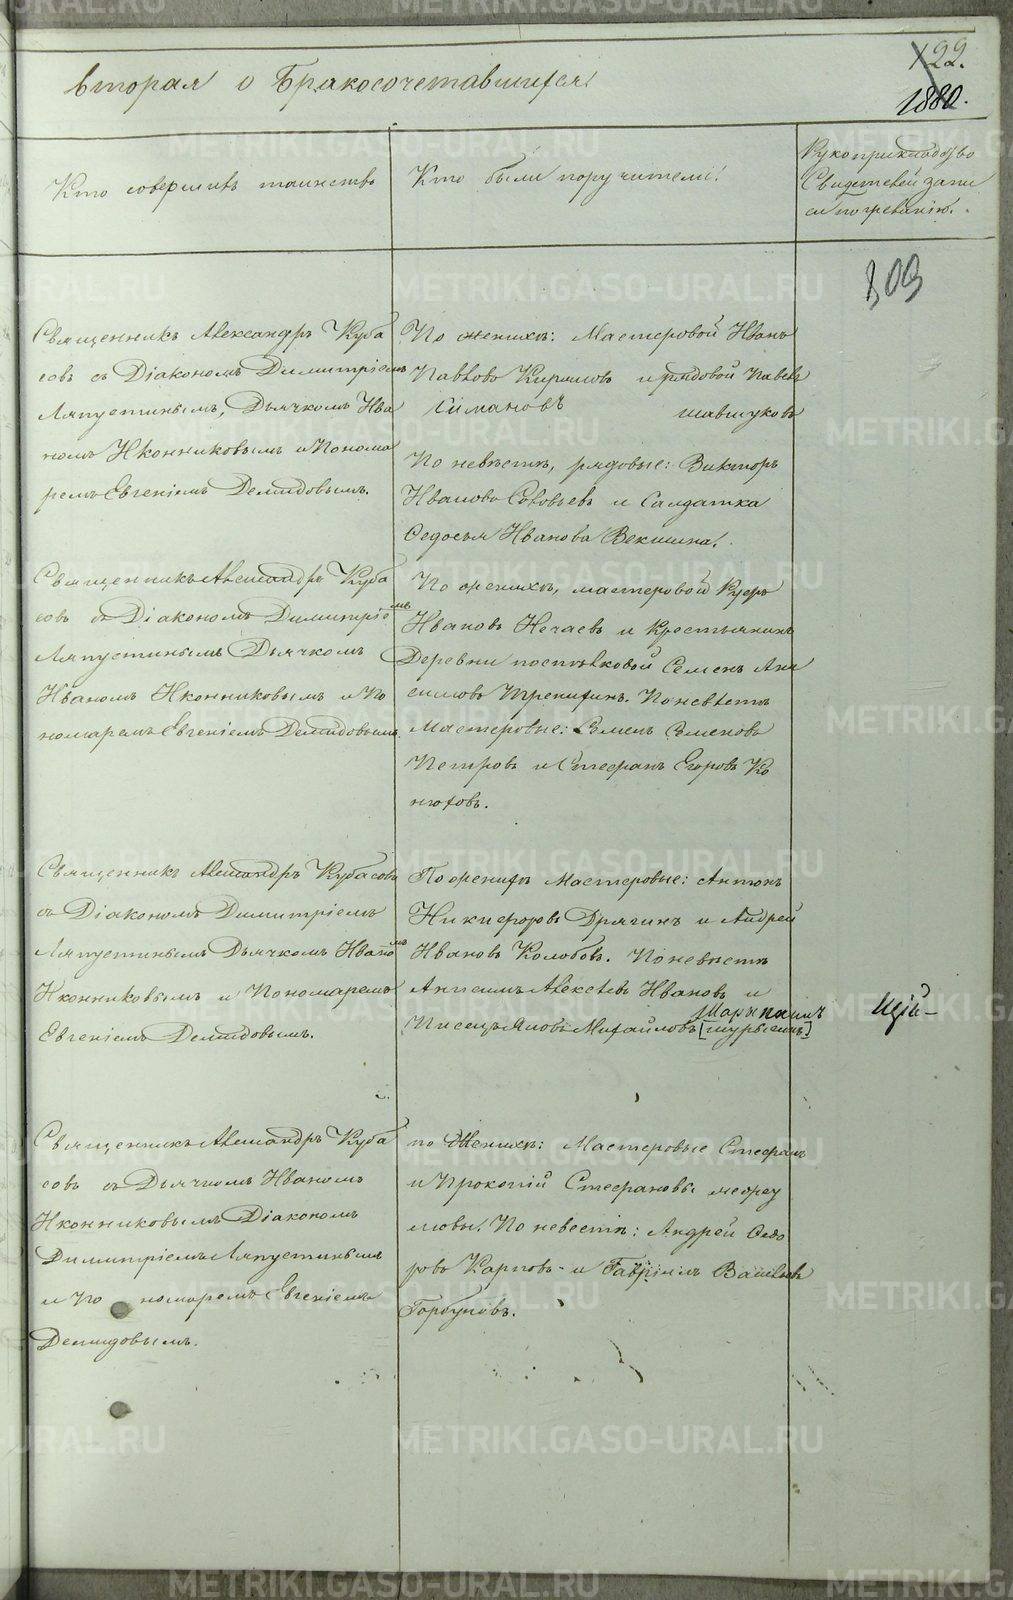 вторая о Бракосочетавшихся
122.
1880.
Кто совершилъ таинство
Кто были поручители:
Рукоприкладство
Свидетелей запи
си по желанію.
309
Священникъ Александръ Куба
совъ съ Діакономъ Димитріемъ
Ляпустинымъ, Дьячкомъ Ива
номъ Иконниковымъ и Понома
ремъ Евгеніемъ Демидовымъ.
По женихѣ: Мастеровой Иванъ
Павловъ Кириловъ и рядовой Павелъ
Симановъ Шавшуковъ
По невѣстѣ, рядовые: Викторъ
Ивановъ Соловьевъ и Салдатка
Федосья Иванова Векшина.
Священникъ Александръ Куба
совъ съ Діакономъ Димитріемъ
Ляпустинымъ Дьячкомъ
Иваномъ Иконниковымъ и По
номаремъ Евгеніемъ Демидовымъ.
По женихѣ, мастеровой
Ивановъ Нечаевъ и Крестьянинъ
Деревни Семенъ Ани
симовъ Поневѣстѣ
Мастеровые: Семенъ Семеновъ
Петровъ и Стефанъ Егоровъ Ко
нюховъ.
Священникъ Александръ Кубасовъ
съ Діакономъ Димитріемъ
Ляпустинымъ Дьячкомъ Иваномъ
Иконниковымъ и Пономаремъ
Евгеніемъ Демидовымъ.
По женихѣ Мастеровые: Антонъ
Никифоровъ Дрягинъ и Андрей
Ивановъ Колобовъ. Поневѣстѣ
Анисимъ Алексѣевъ Ивановъ и
Писецъ Яковъ Михайловъ [Шурыгинъ]
Священникъ Александръ Куба
совъ съ Дьячкомъ Иваномъ
Иконниковымъ Діакономъ
Димитріемъ Ляпустинымъ
и По номаремъ Евгеніемъ
Демидовымъ.
по Женихѣ: Мастеровые Стефанъ
и Прокопій Стефановы
По невестѣ: Андрей Федо
ровъ Карповъ и Гавріилъ Васильевъ
Горбуновъ.
METRIKI.GASO-URAL.RU